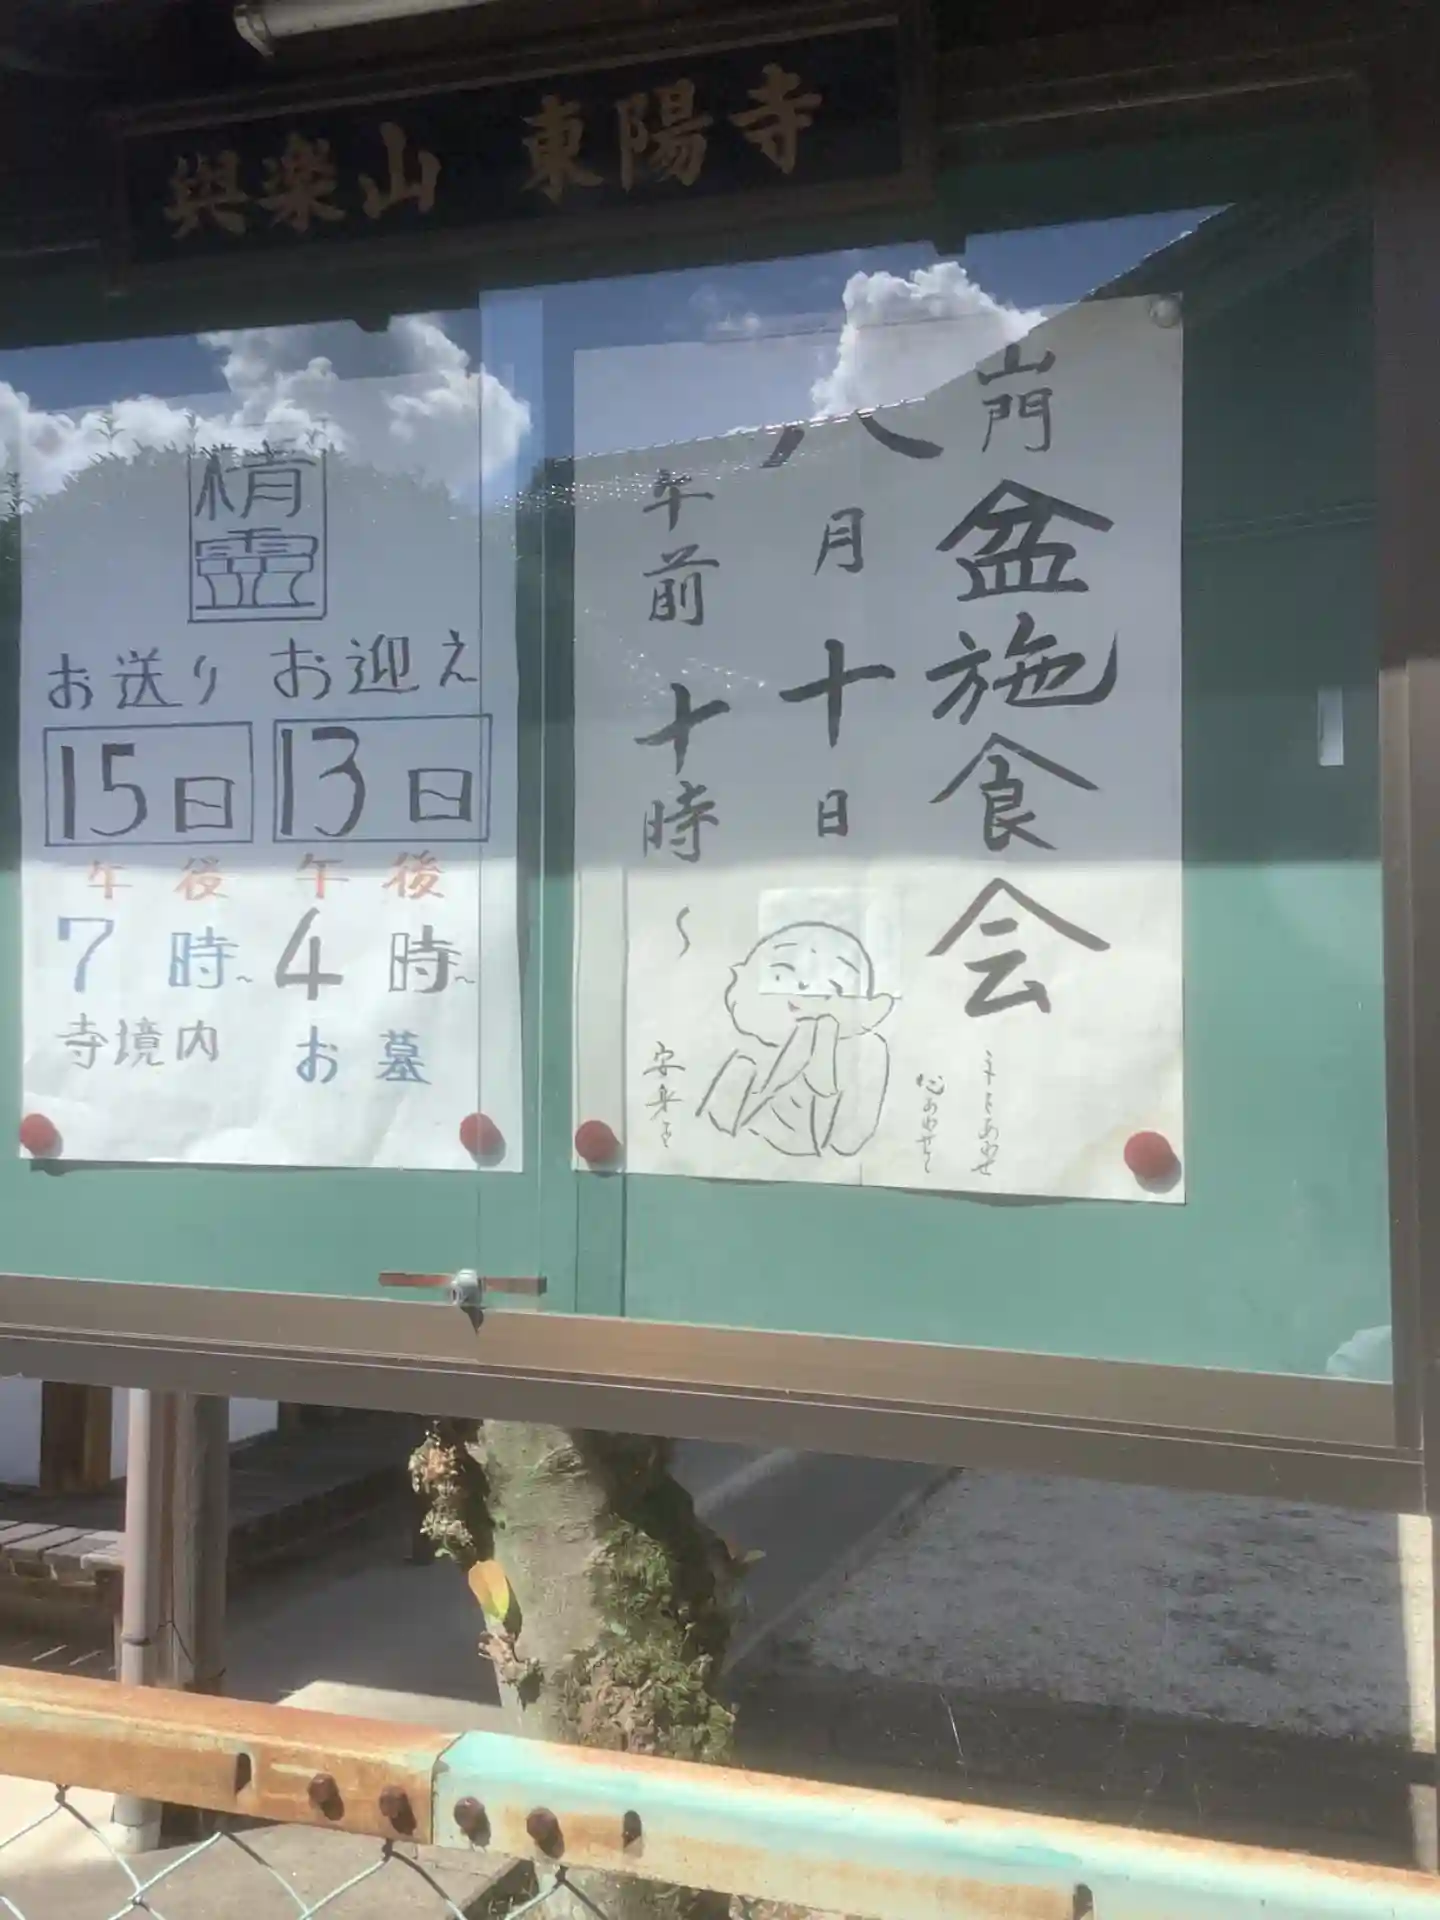 與楽山 東陽寺
山門 盆施食会
八月十日
午前十時〜
手をあわせ
心あわせて
精霊
お迎え
13日
午後
4時~
お墓
お送り
15日
午後
7時~
寺境内